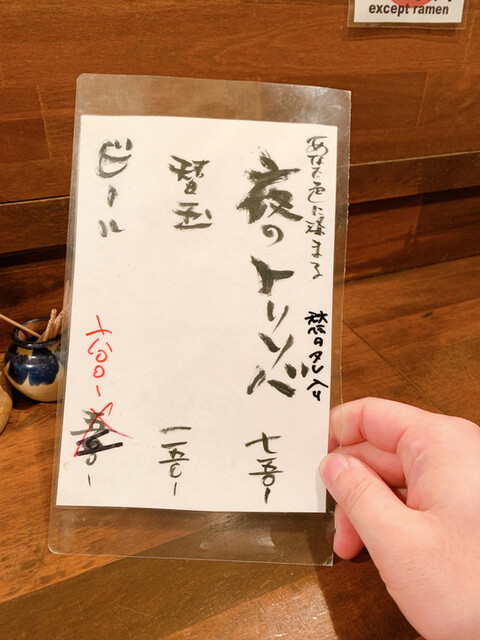 except ramen
あなた色に染まる
禁のダレ入り
夜のトリソバ
七五〇ー
替玉
一五〇ー
ビール
六〇〇ー
五〇〇ー